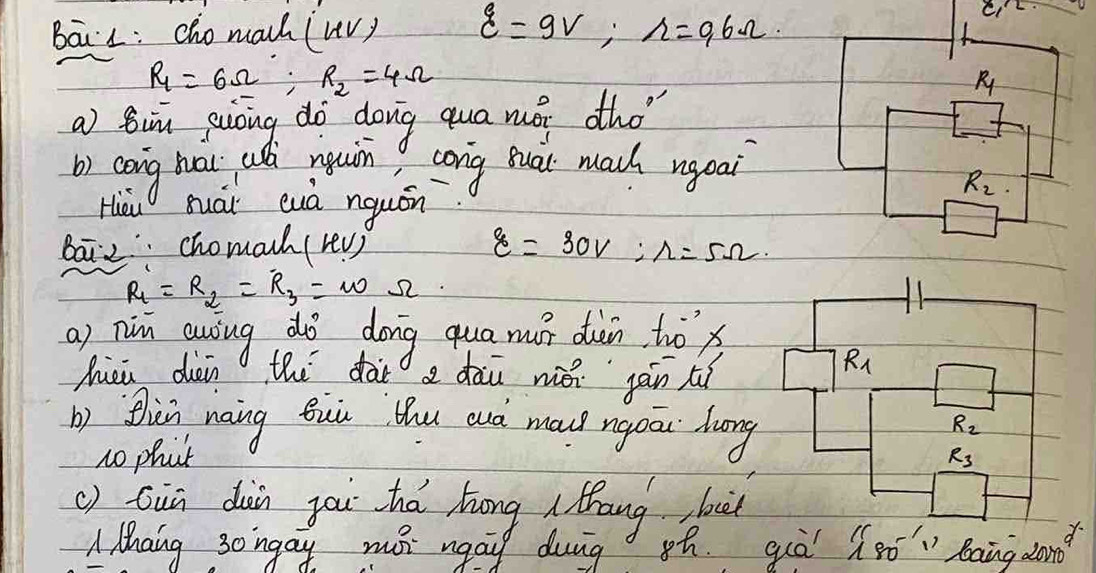 Bài 1: Cho mạch (HV) ℰ = 9V ; r = 0,6Ω.
R1 = 6Ω ; R2 = 4Ω
a) Tìm cường độ dòng qua mỗi đtrở
b) công suất của nguồn, công suất mạch ngoài
Hiệu suất của nguồn.
ℰ, r
R1
R2
Bài 2: Cho mạch (HV) ℰ = 30V ; r = 5Ω.
R1 = R2 = R3 = 10 Ω.
a) Tìm cường độ dòng qua mỗi điện trở
hiệu điện thế đặt 2 đầu mỗi
b) Điện năng tiêu thụ của mạch ngoài trong
10 phút
c) tiền điện trả trong 1 tháng, biết
1 tháng 30 ngày mỗi ngày dùng 8h. giá "1 số" bằng đ
R1
R2
R3